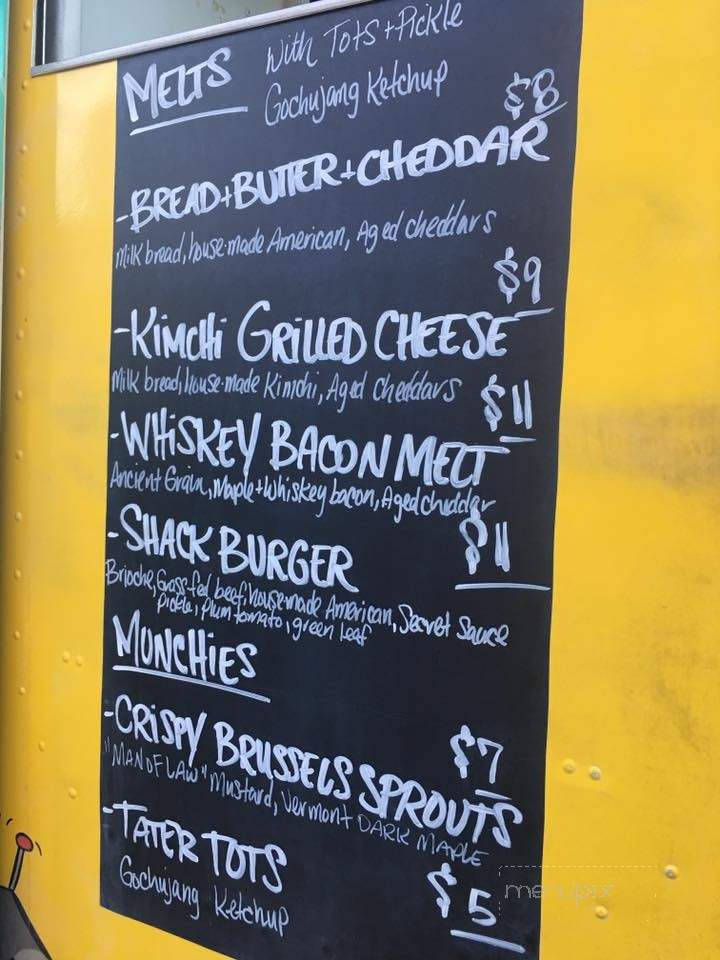 MELTS with Tots + Pickle
Gochujang Ketchup
$8
-BREAD+BUTTER+CHEDDAR
Milk bread, house-made American, Aged cheddars
$9
-KIMCHI GRILLED CHEESE
Milk bread, house-made Kimchi, Aged Cheddars
$11
-WHISKEY BACON MELT
Ancient Grain, Maple+Whiskey bacon, Aged cheddar
$11
-SHACK BURGER
Brioche, Grass-fed beef, housemade American, Secret Sauce
Pickle, plum tomato, green leaf
MUNCHIES
$7
-CRISPY BRUSSELS SPROUTS
"MANOFLAW" Mustard, Vermont DARK MAPLE
-TATER TOTS
$5
Gochujang Ketchup
menupix